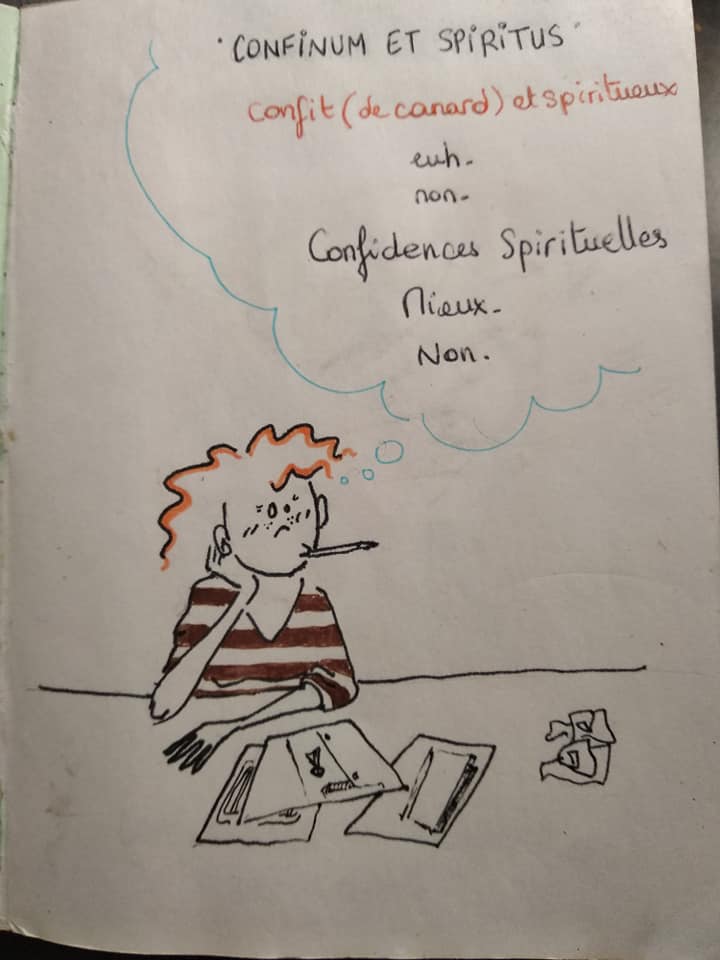 'CONFINUM ET SPIRITUS'
Confit (de canard) et spiritueux
euh.
non.
Confidences Spirituelles
Mieux.
Non.